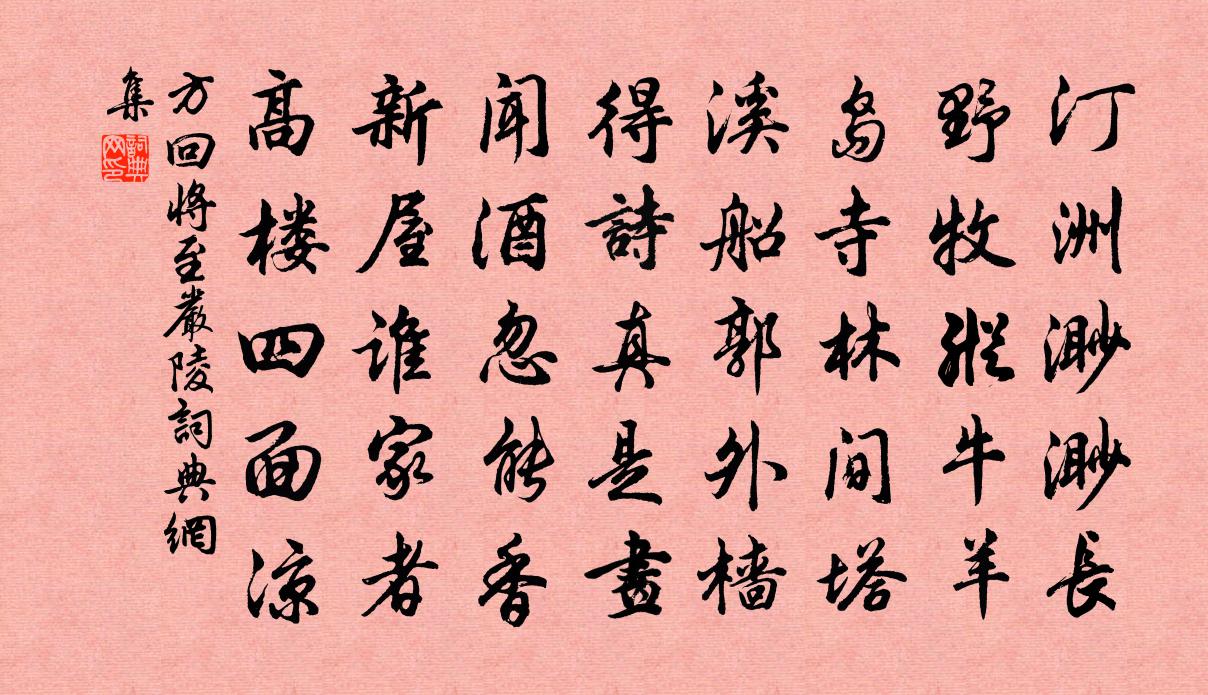 汀洲渺渺長
野牧縱牛羊
島寺林間塔
溪船郭外檣
得詩真是畫
闻酒忽能香
新屋谁家者
高楼四面凉
方回將至嚴陵詞典網
集
詞典網印